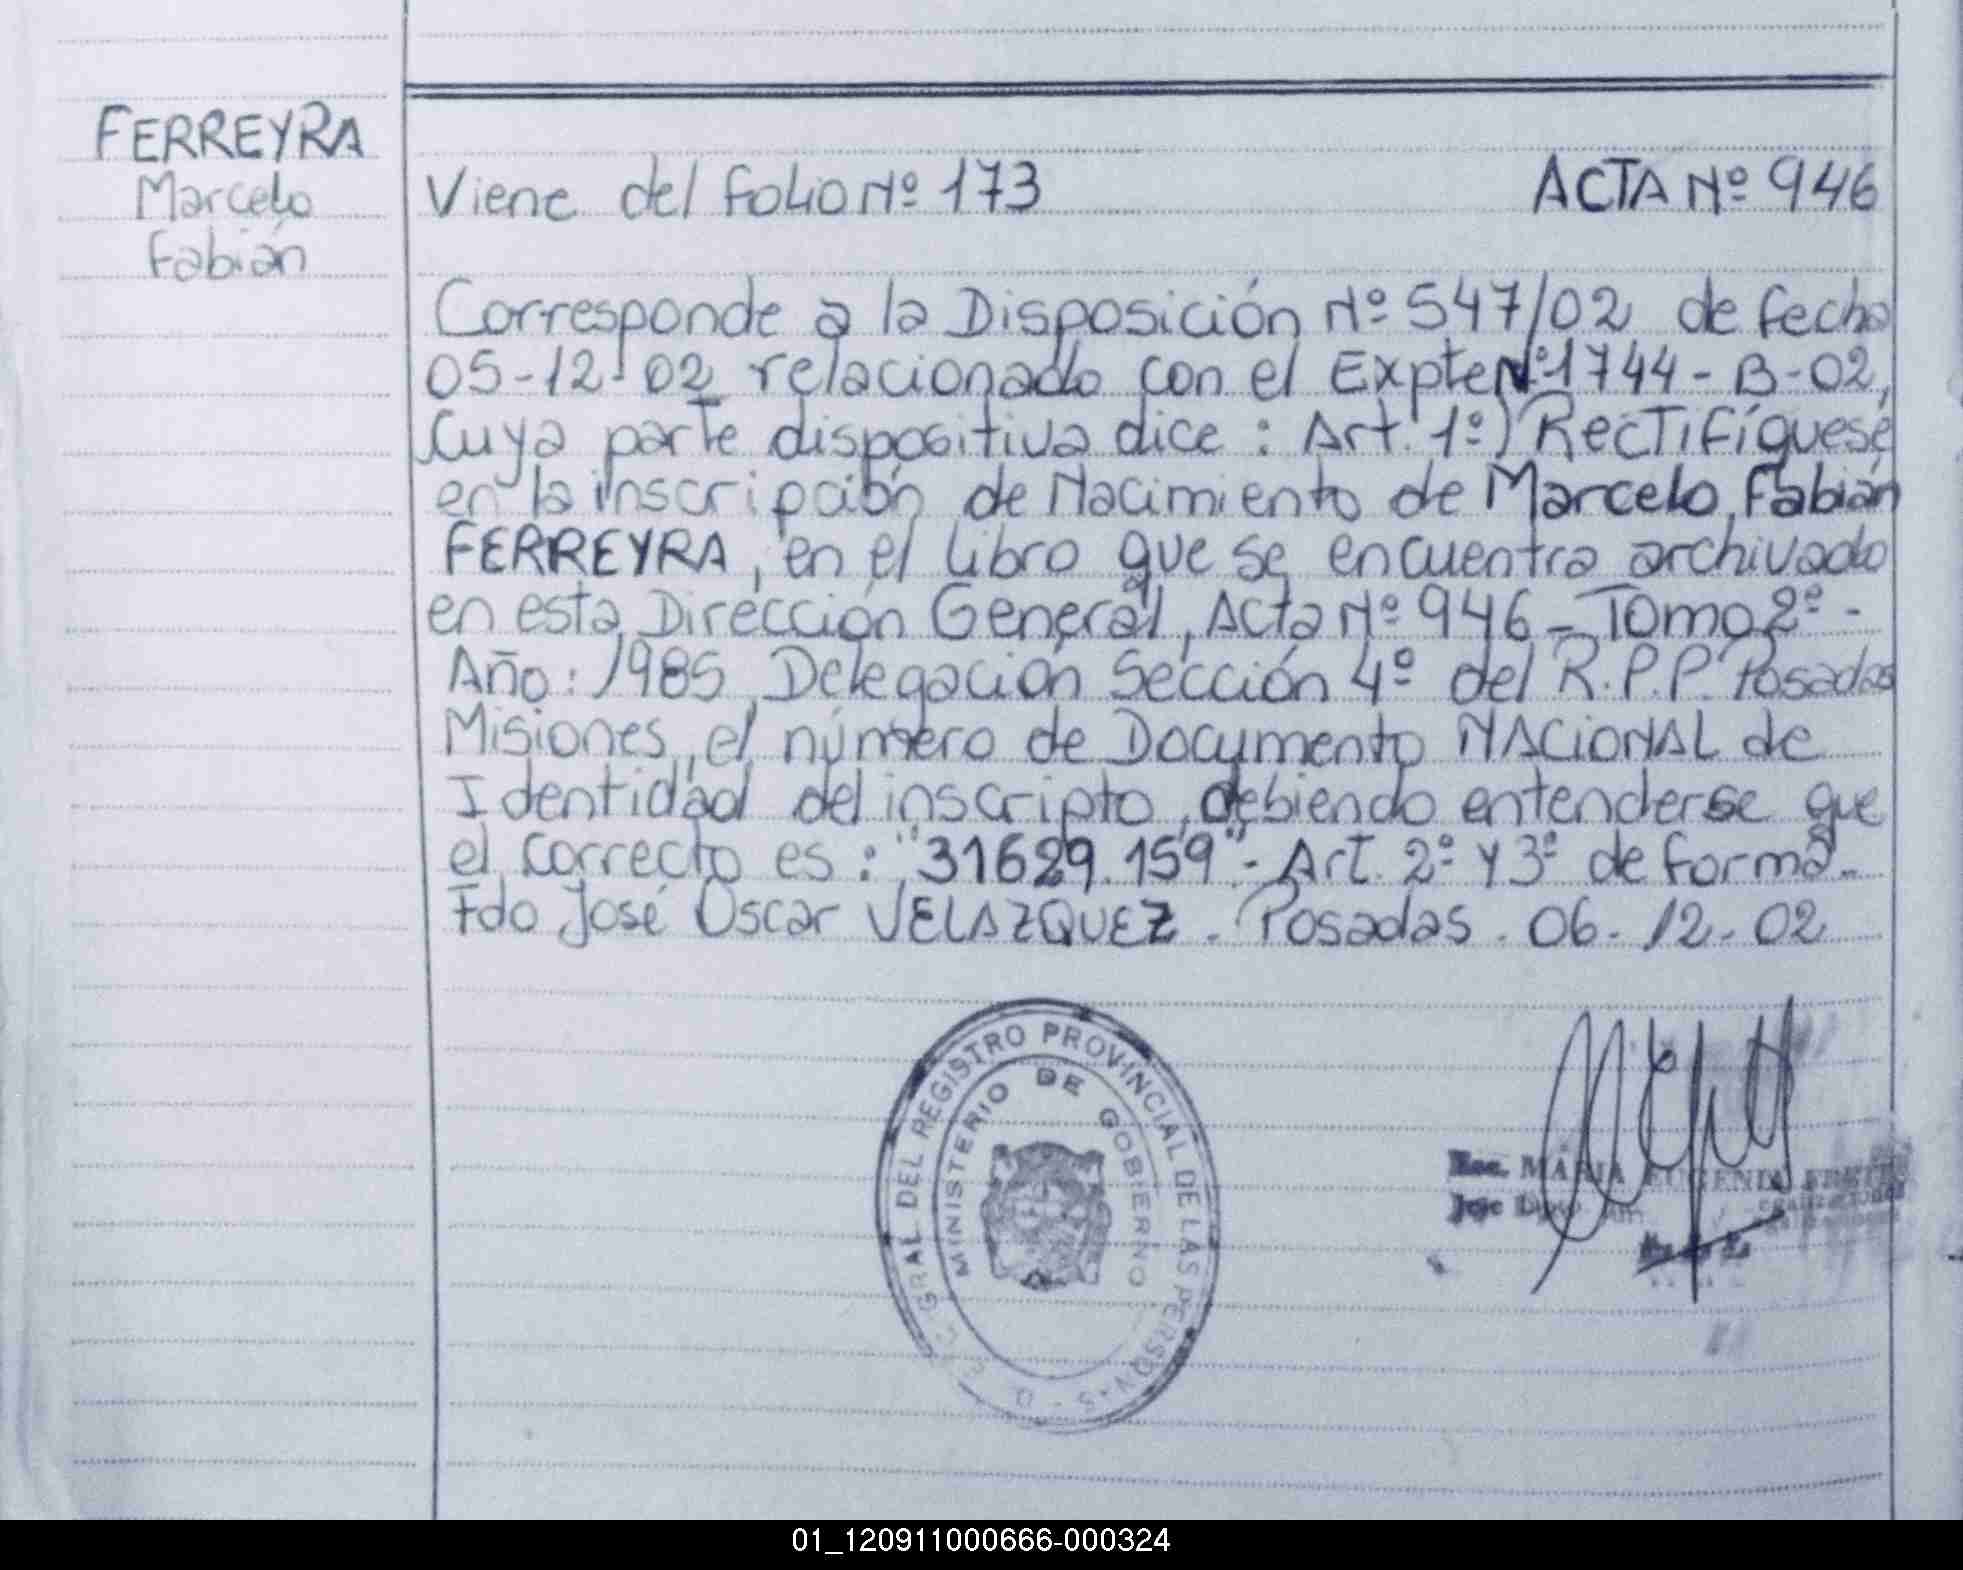 FERREYRA
Marcelo
Fabián
Viene del folio Nº 173 ACTA Nº 946
Corresponde a la Disposición Nº 547/02 de fecha
05-12-02 relacionado con el Expte Nº 1744-B-02,
Cuya parte dispositiva dice: Art. 1º) RECTIFíquese
en la inscripción de Nacimiento de Marcelo Fabián
FERREYRA, en el libro que se encuentra archivado
en esta Dirección General, Acta Nº 946 - Tomo 2º -
Año: 1985, Delegación Sección 4º del R.P.P. Posadas
Misiones, el número de Documento NACIONAL de
Identidad del inscripto, debiendo entenderse que
el correcto es: "31629.159" - Art. 2º y 3º de forma.-
Fdo José Oscar VELAZQUEZ. Posadas. 06-12-02
GRAL DEL REGISTRO PROVINCIAL DE LAS PERSONAS
MINISTERIO DE GOBIERNO
MARIA EUGENIA
Jefe Dpto.
01_120911000666-000324